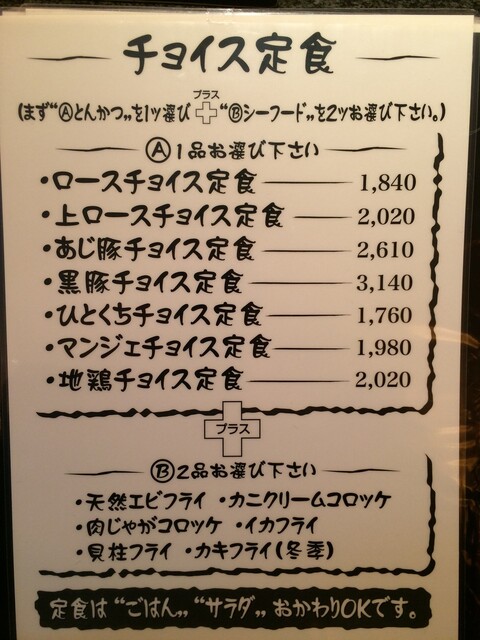 チョイス定食
(まず"Ⓐとんかつ„を1ツ選び プラス "Ⓑシーフード„を2ツお選び下さい。)
Ⓐ1品お選び下さい
・ロースチョイス定食 1,840
・上ロースチョイス定食 2,020
・あじ豚チョイス定食 2,610
・黒豚チョイス定食 3,140
・ひとくちチョイス定食 1,760
・マンジェチョイス定食 1,980
・地鶏チョイス定食 2,020
プラス
Ⓑ2品お選び下さい
・天然エビフライ ・カニクリームコロッケ
・肉じゃがコロッケ ・イカフライ
・貝柱フライ ・カキフライ(冬季)
定食は"ごはん„ "サラダ„ おかわりOKです。